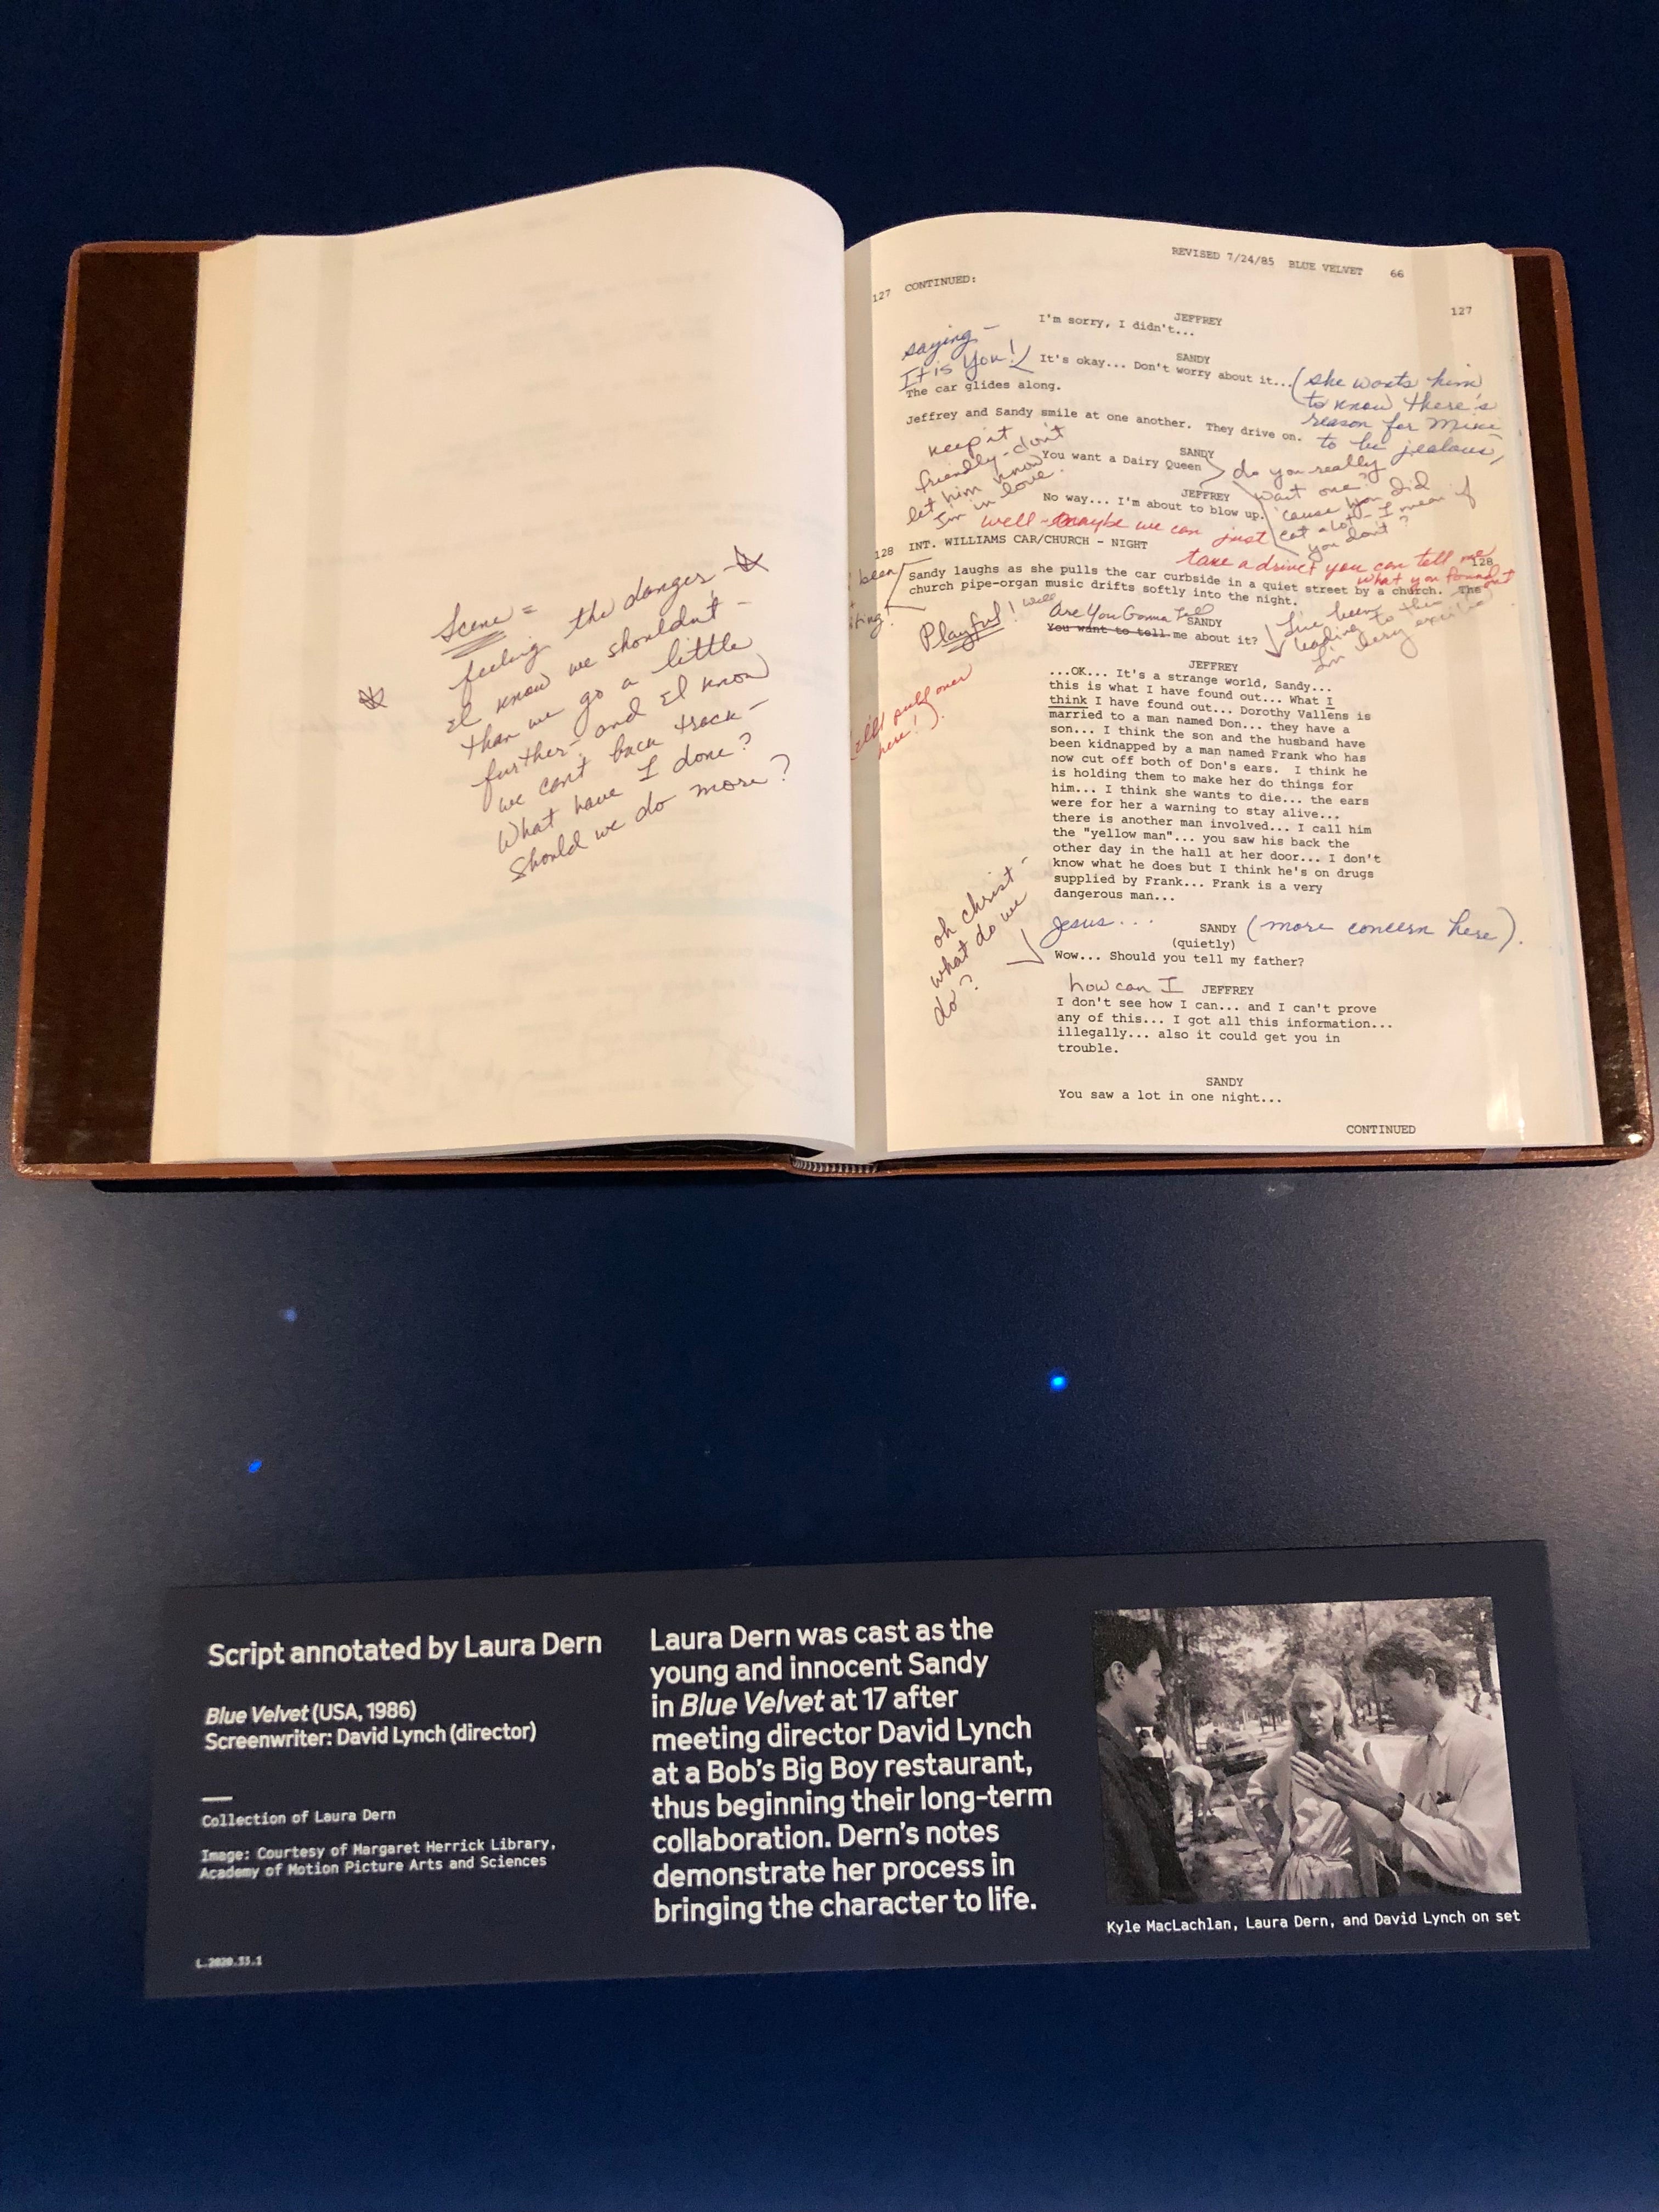 Scene =
feeling the danger -
I know we shouldn't -
than we go a little
further - and I know
we can't back track -
What have I done?
Should we do more?
REVISED 7/24/85 BLUE VELVET 66
127 CONTINUED: 127
JEFFREY
I'm sorry, I didn't...
saying -
It is You!
SANDY
It's okay... Don't worry about it...
(she wants him
to know there's
reason for Mike
to be jealous,
The car glides along.
Jeffrey and Sandy smile at one another. They drive on.
keep it
friendly - don't
let him know
I'm in love.
SANDY
You want a Dairy Queen
do you really
want one?
'cause you did
eat a lot - I mean if
you don't?
JEFFREY
No way... I'm about to blow up.
well - maybe we can just
take a drive & you can tell me
what you found out
128 INT. WILLIAMS CAR/CHURCH - NIGHT 128
been
Sandy laughs as she pulls the car curbside in a quiet street by a church. The
church pipe-organ music drifts softly into the night.
Playful! well
Are You Gonna Tell
SANDY
You want to tell me about it?
I've been
leading to this
I'm very excited
(I'll pull over
here!).
JEFFREY
...OK... It's a strange world, Sandy...
this is what I have found out... What I
think I have found out... Dorothy Vallens is
married to a man named Don... they have a
son... I think the son and the husband have
been kidnapped by a man named Frank who has
now cut off both of Don's ears. I think he
is holding them to make her do things for
him... I think she wants to die... the ears
were for her a warning to stay alive...
there is another man involved... I call him
the "yellow man"... you saw his back the
other day in the hall at her door... I don't
know what he does but I think he's on drugs
supplied by Frank... Frank is a very
dangerous man...
oh christ -
what do we
do?
Jesus...
SANDY (more concern here).
(quietly)
Wow... Should you tell my father?
how can I
JEFFREY
I don't see how I can... and I can't prove
any of this... I got all this information...
illegally... also it could get you in
trouble.
SANDY
You saw a lot in one night...
CONTINUED
Script annotated by Laura Dern
Blue Velvet (USA, 1986)
Screenwriter: David Lynch (director)
Collection of Laura Dern
Image: Courtesy of Margaret Herrick Library,
Academy of Motion Picture Arts and Sciences
L.2020.33.1
Laura Dern was cast as the
young and innocent Sandy
in Blue Velvet at 17 after
meeting director David Lynch
at a Bob's Big Boy restaurant,
thus beginning their long-term
collaboration. Dern's notes
demonstrate her process in
bringing the character to life.
Kyle MacLachlan, Laura Dern, and David Lynch on set